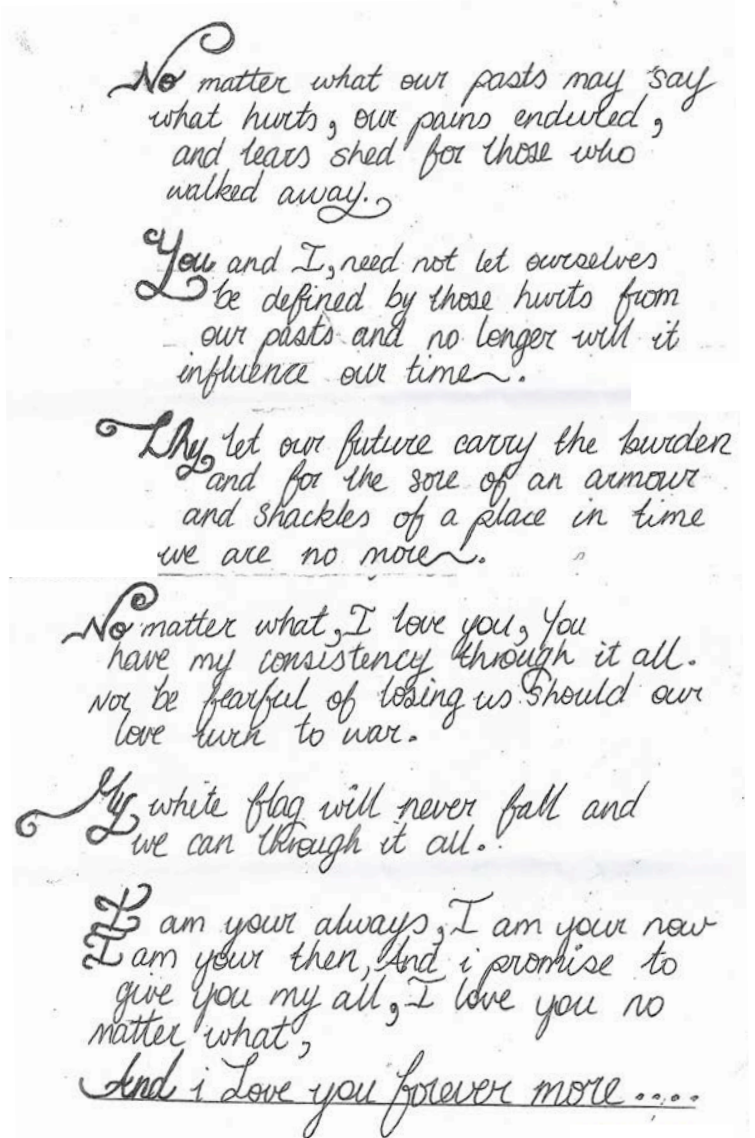 No matter what our pasts may say
what hurts, our pains endured,
and tears shed for those who
walked away.
You and I, need not let ourselves
be defined by those hurts from
our pasts and no longer will it
influence our time.
Why let our future carry the burden
and for the sore of an armour
and shackles of a place in time
we are no more.
No matter what, I love you, You
have my consistency through it all.
Nor be fearful of losing us should our
love turn to war.
My white flag will never fall and
we can through it all.
I am your always, I am your now
I am your then, And i promise to
give you my all, I love you no
matter what,
And i Love you forever more....